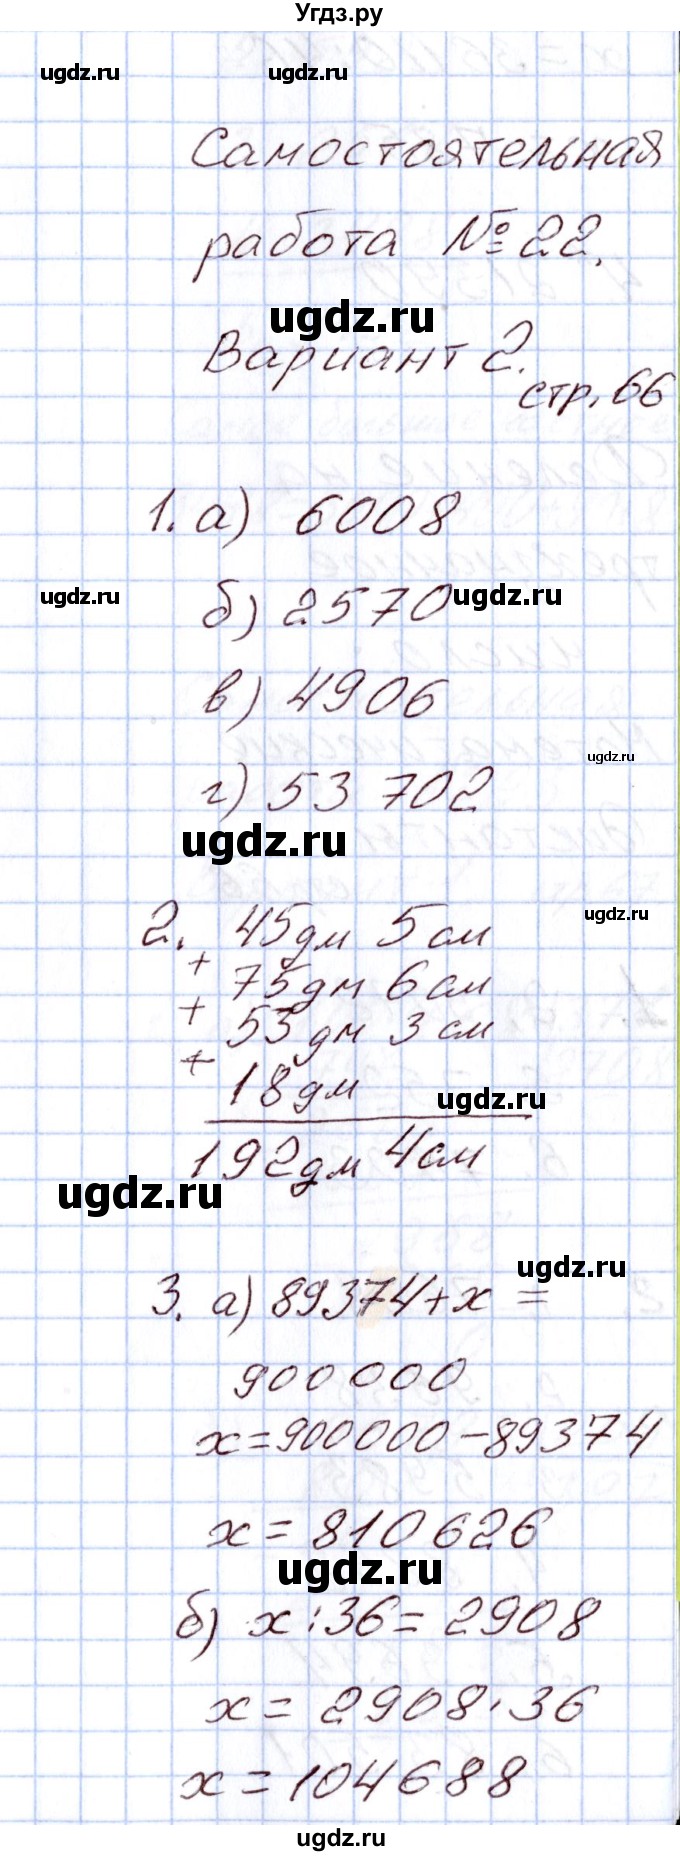 Угдз.ру
ugdz.ru ugdz.ru
Самостоятельная
работа №22.
ugdz.ru
Вариант 2.
стр. 66
1. а) 6008
ugdz.ru
б) 2570 ugdz.ru
в) 4906
ugdz.ru
г) 53 702
ugdz.ru
ugdz.ru
2. 45дм 5см
+ 75дм 6см
+ 53дм 3см
+ 18дм
ugdz.ru
192дм 4см
ugdz.ru
ugdz.ru
3. а) 89374+х =
900000
х=900000-89374
х=810626
ugdz.ru
б) х:36=2908
х=2908·36
х=104688
ugdz.ru